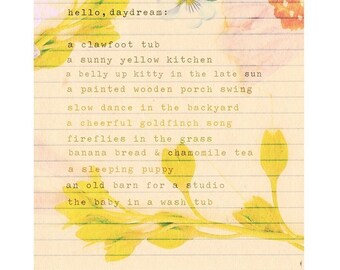 hello, daydream:
a clawfoot tub
a sunny yellow kitchen
a belly up kitty in the late sun
a painted wooden porch swing
slow dance in the backyard
a cheerful goldfinch song
fireflies in the grass
banana bread & chamomile tea
a sleeping puppy
an old barn for a studio
the baby in a wash tub